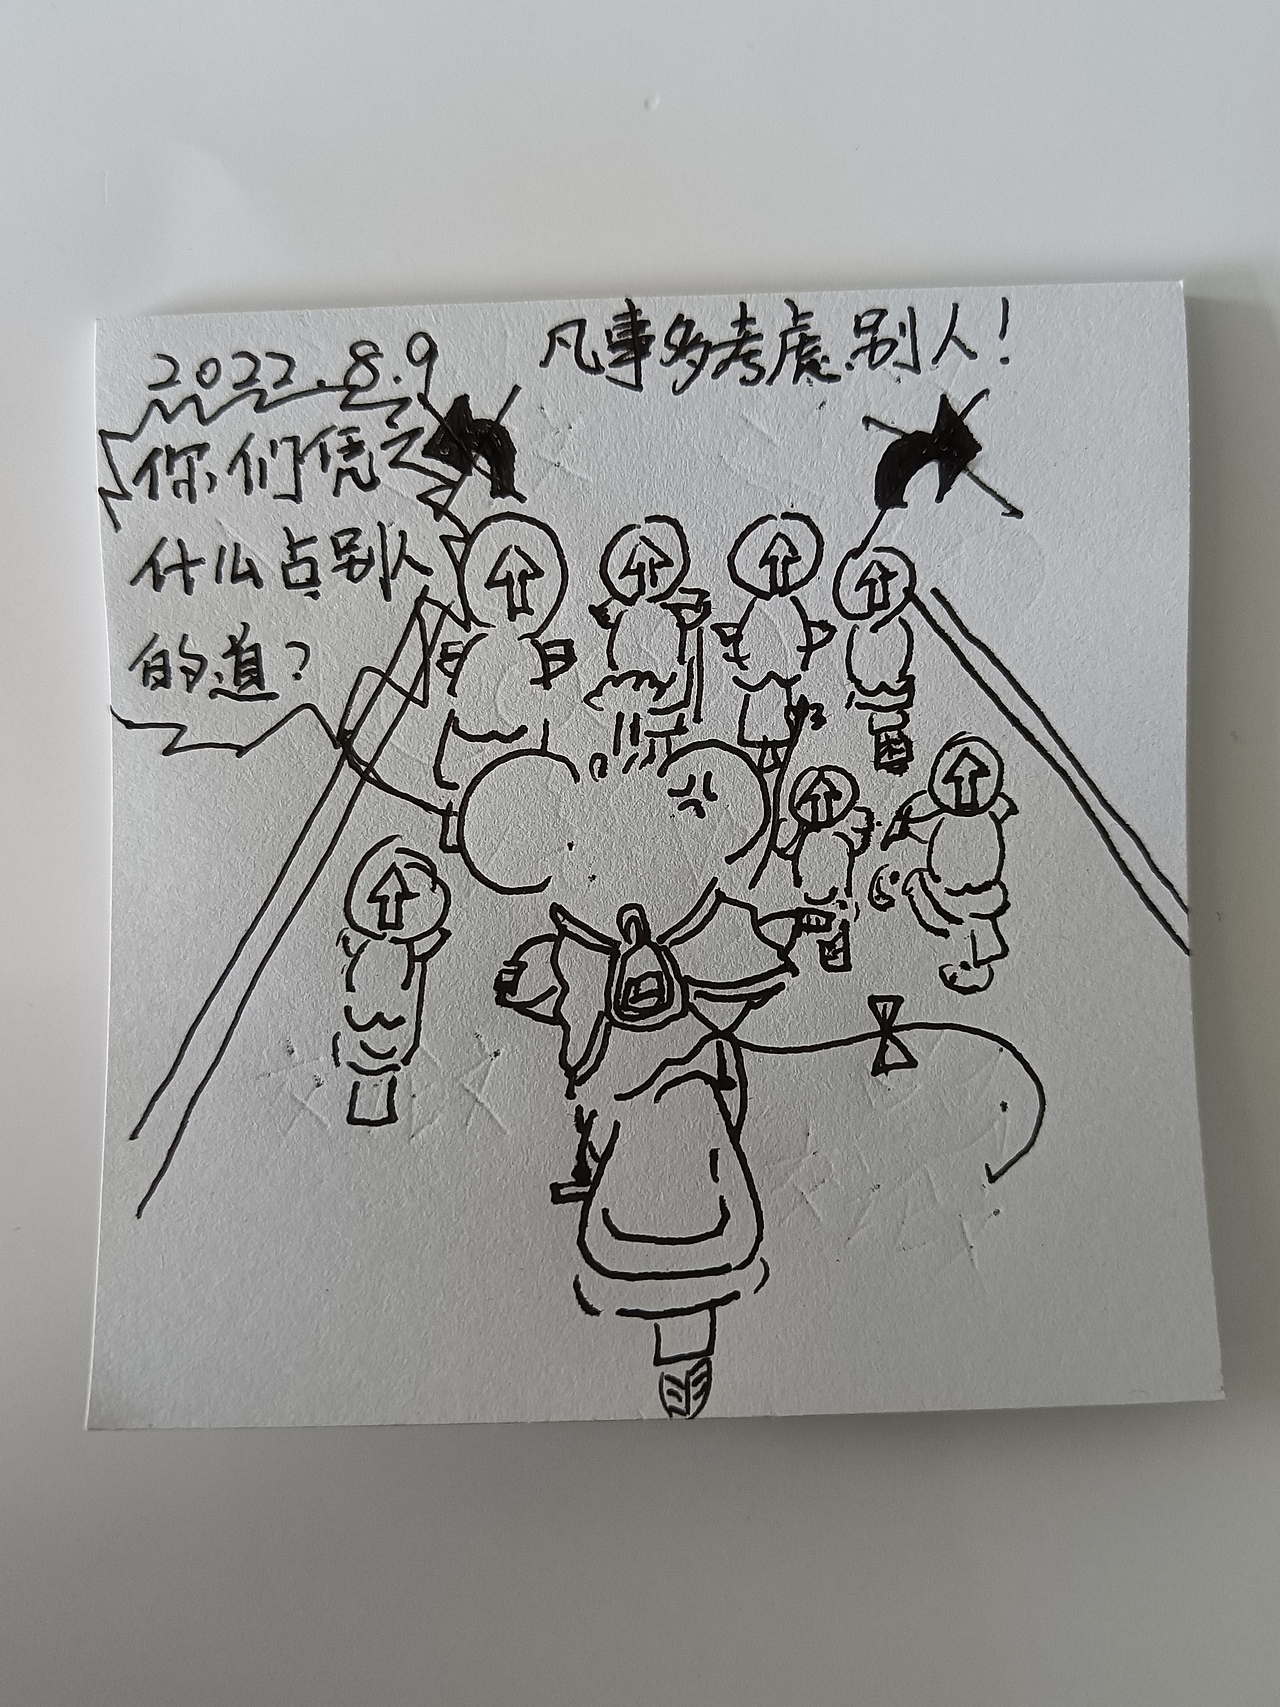 2022.8.9
凡事多考虑别人!
你们凭
什么占别人
的道?